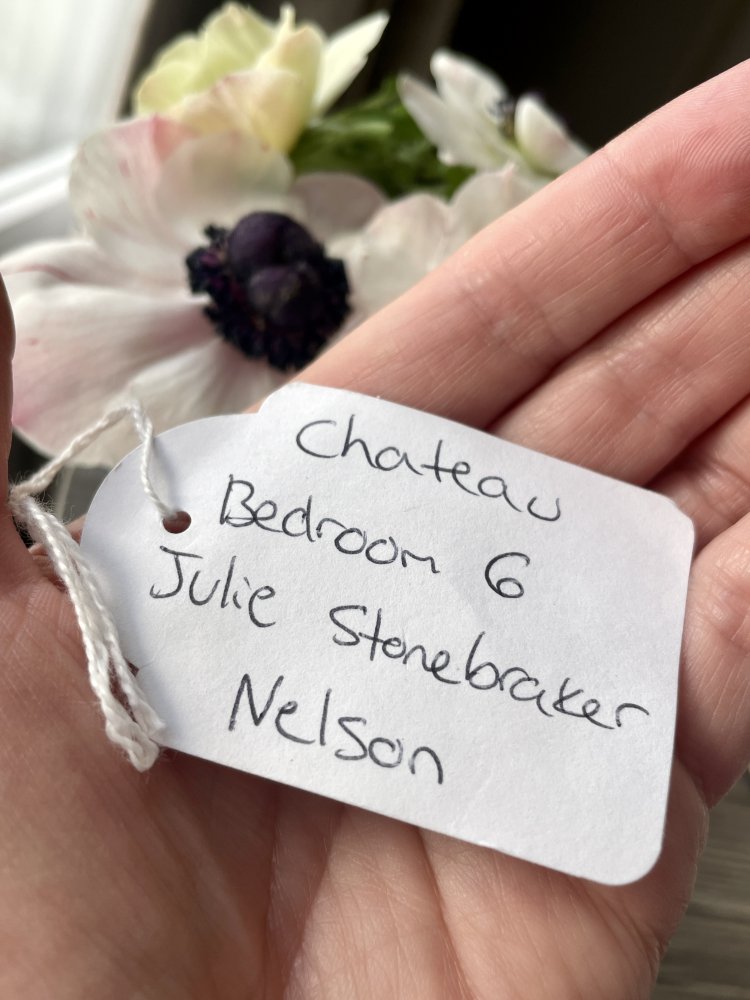 Chateau
Bedroom 6
Julie Stonebraker
Nelson